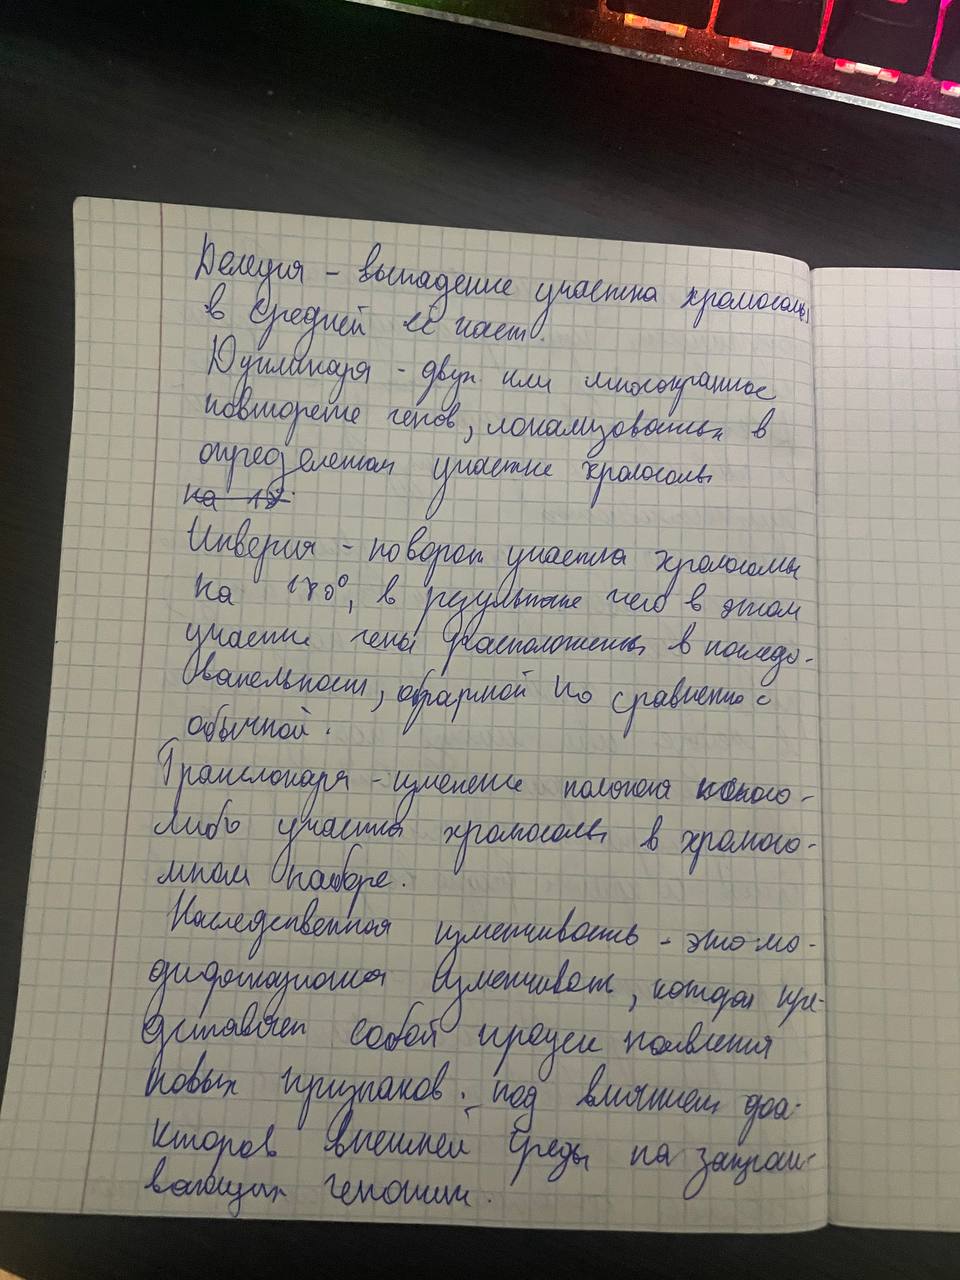 Делеция - выпадение участка хромосомы
в средней её част.
Дупликация - двух или многократное
повторение генов, локализованных в
определенном участке хромосомы
на 18
Инверия - поворот участка хромосомы
на 180°, в результате чего в этом
участке гены расположены в последо-
вательност, обратной по сравнению с
обычной.
Транслокация - изменение положения какого-
либо участка хромосомы в хромосо-
мном наборе.
Наследственная изменчивость - это мо-
дификационная изменчивост, которая пре-
дставляет собой процесс появления
новых признаков под влиянием фа-
кторов внешней среды не затраги-
вающих генотип.